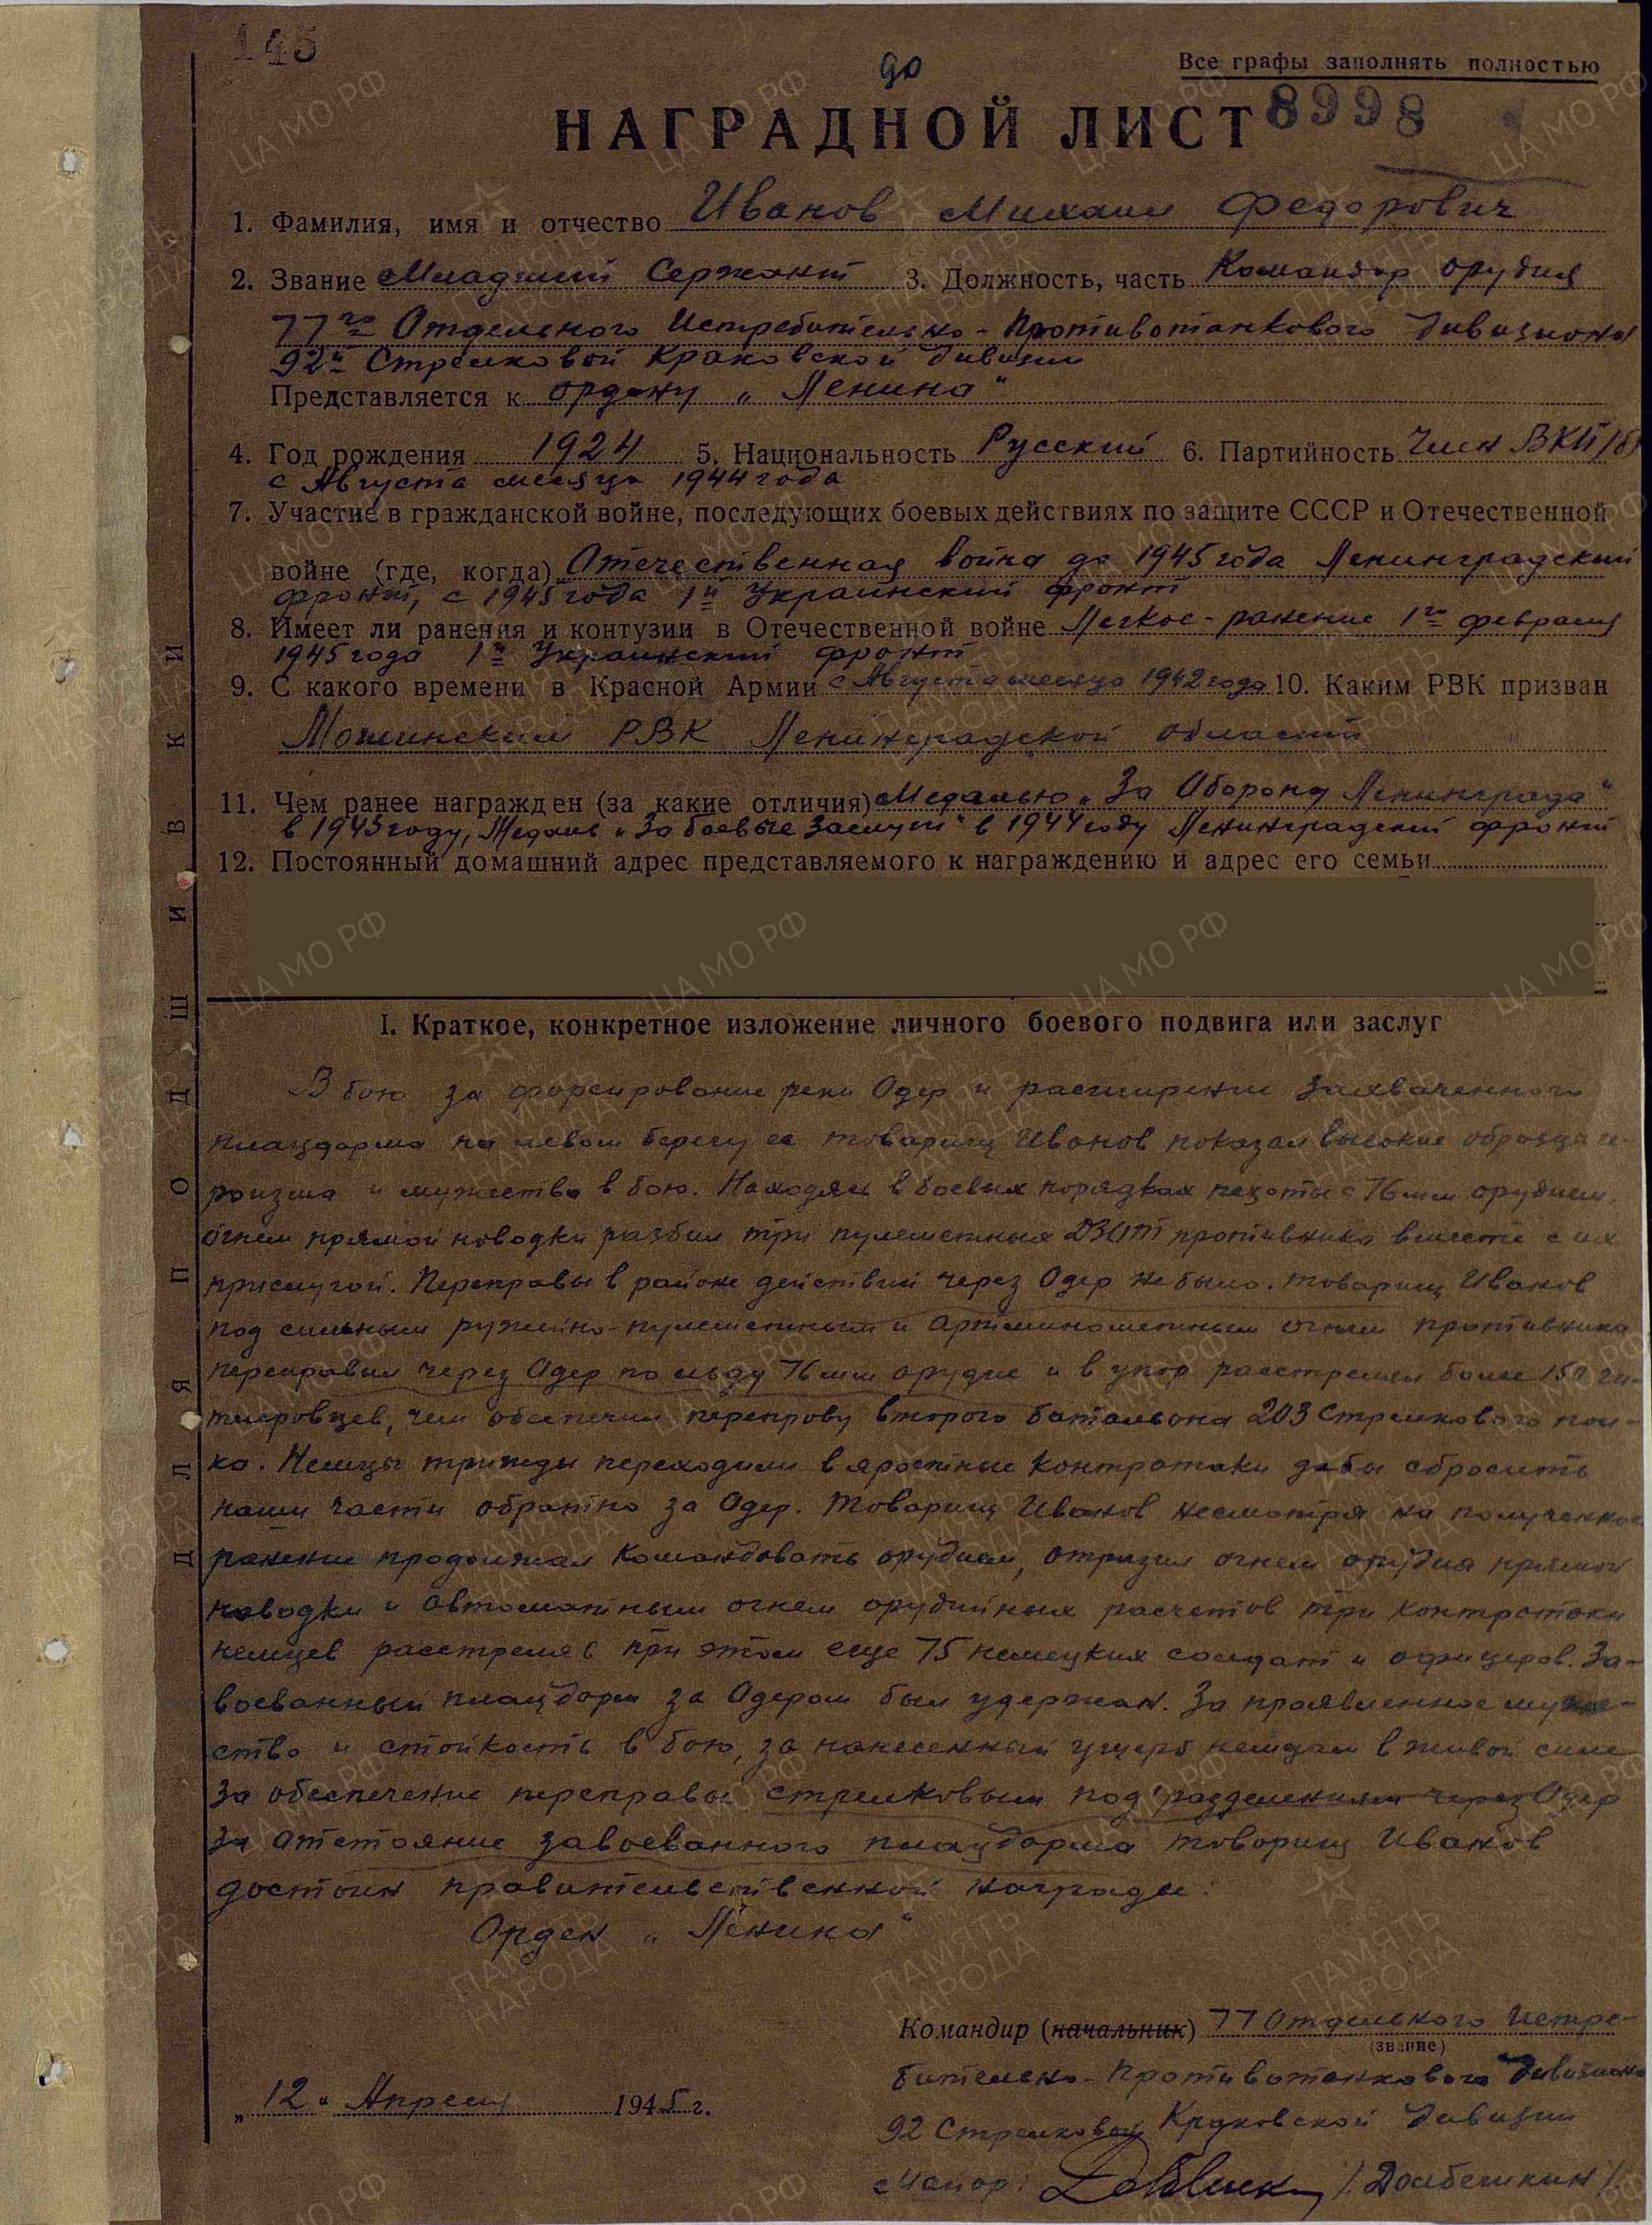 145
до
Все графы заполнять полностью
НАГРАДНОЙ ЛИСТ 8998
1. Фамилия, имя и отчество Иванов Михаил Федорович
2. Звание Младший Сержант 3. Должность, часть Командир орудия
77го Отдельного Истребительно-Противотанкового дивизиона
92й Стрелковой Краковской дивизии
Представляется к ордену „Ленина"
4. Год рождения 1924 5. Национальность Русский 6. Партийность Член ВКП/б/
с Августа месяца 1944 года
7. Участие в гражданской войне, последующих боевых действиях по защите СССР и Отечественной
войне (где, когда) Отечественная война до 1945 года Ленинградский
фронт, с 1945 года 1й Украинский фронт
8. Имеет ли ранения и контузии в Отечественной войне Легкое-ранение 1го февраля
1945 года 1й Украинский фронт
9. С какого времени в Красной Армии с Августа месяца 1942 года 10. Каким РВК призван
РВК Ленинградской области
11. Чем ранее награжден (за какие отличия) Медалью „За Оборону Ленинграда"
в 1943 году, Медаль „За боевые заслуги" в 1944 году Ленинградский фронт
12. Постоянный домашний адрес представляемого к награждению и адрес его семьи
I. Краткое, конкретное изложение личного боевого подвига или заслуг
В бою за форсирование реки Одер и расширение захваченного
плацдарма на левом берегу ее товарищ Иванов показал высокие образцы ге-
роизма и мужества в бою. Находясь в боевых порядках пехоты с 76 мм орудием,
огнем прямой наводки разбил три пулеметных ДЗОТ противника вместе с их
прислугой. Переправы в районе действий через Одер не было. Товарищ Иванов
под сильным ружейно-пулеметным и артминометным огнем противника
переправил через Одер по льду 76 мм орудие и в упор расстрелял более 150 ги-
тлеровцев, чем обеспечил переправу второго батальона 203 Стрелкового пол-
ка. Немцы трижды переходили в яростные контратаки дабы сбросить
наши части обратно за Одер. Товарищ Иванов несмотря на полученное
ранение продолжал командовать орудием, отразил огнем орудия прямой
наводки и автоматным огнем орудийных расчетов три контратаки
немцев расстреляв при этом еще 75 немецких солдат и офицеров. За-
воеванный плацдарм за Одером был удержан. За проявленное муже-
ство и стойкость в бою, за нанесенный ущерб немцам в живой силе
За обеспечение переправы стрелковым подразделениям через Одер
За отстояние завоеванного плацдарма товарищ Иванов
достоин правительственной награды:
Орден „Ленина"
Командир (начальник) 77 Отдельного Истре-
(звание)
бительно-Противотанкового Дивизиона
„12" Апреля 1945 г.
92 Стрелковой Краковской дивизии
Майор:
ДЛЯ ПОДШИВКИ
ЦА МО РФ
ПАМЯТЬ НАРОДА